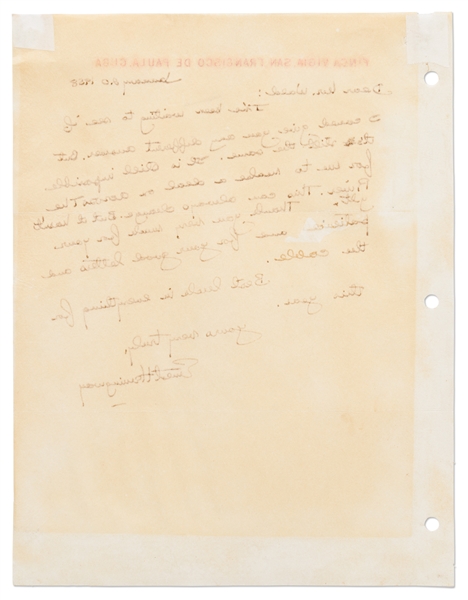 FINCA VIGIA SAN FRANCISCO DE PAULA CUBA
January 20 1958
Dear Mr. Ward:
I've been waiting to see if
I could give you any different answer. But
it's still the same. It is still impossible
for me to make a deal as across the
Thank you very much for your
patience and for your good letters and
the cable.
Best luck in everything for
this year.
Yours very truly,
Ernest Hemingway